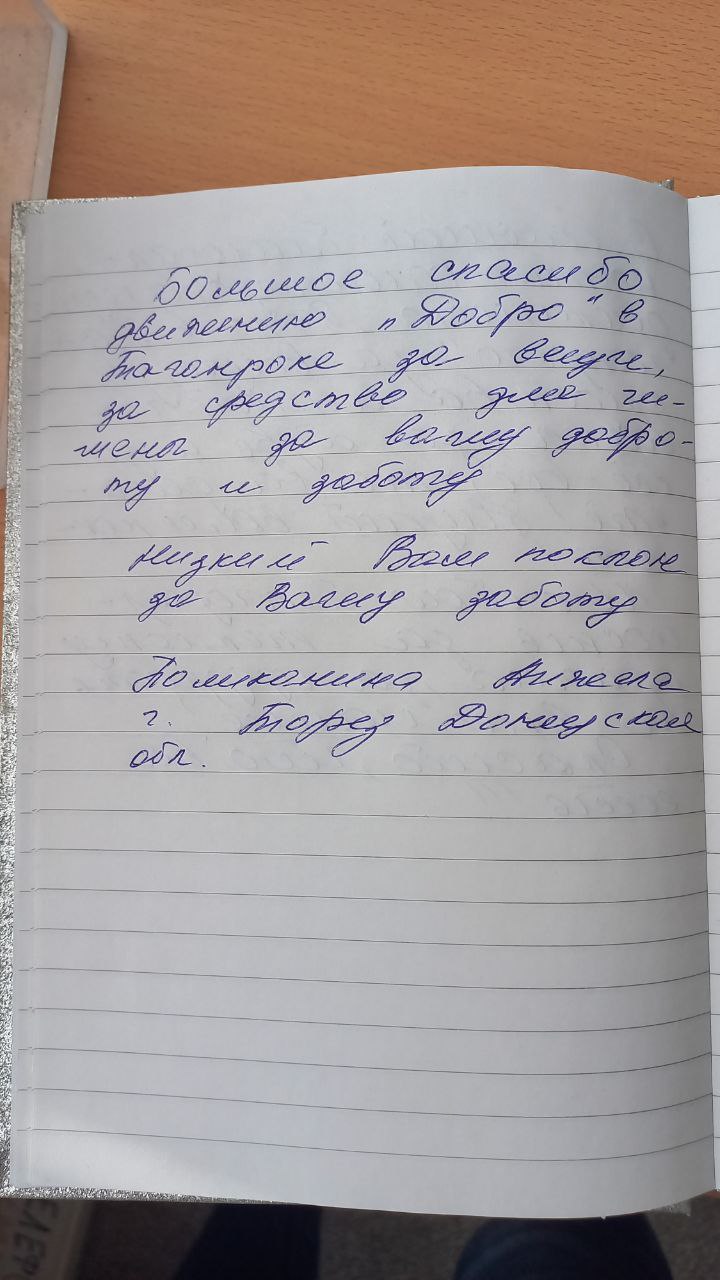 Большое спасибо
движению "Добро" в
Таганроге за вещи,
за средство для ги-
гиены за вашу добро-
ту и заботу
Низкий Вам поклон
за Вашу заботу
Анжела
г. Торез Донецская
обл.